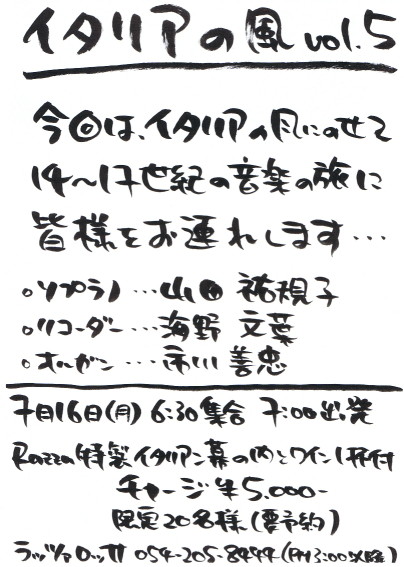 イタリアの風 vol.5
今回は、イタリアの風にのせて
14〜17世紀の音楽の旅に
皆様をお連れします…
○ソプラノ…山田 祐規子
○リコーダー…海野 文葉
○オルガン…市川 善忠
7月16日(月) 6:30集合 7:00出発
Razza特製イタリアン幕の内とワイン1杯付
チャージ¥5,000-
限定20名様(要予約)
ラッツァロッサ 054-205-8444(PM3:00以降)